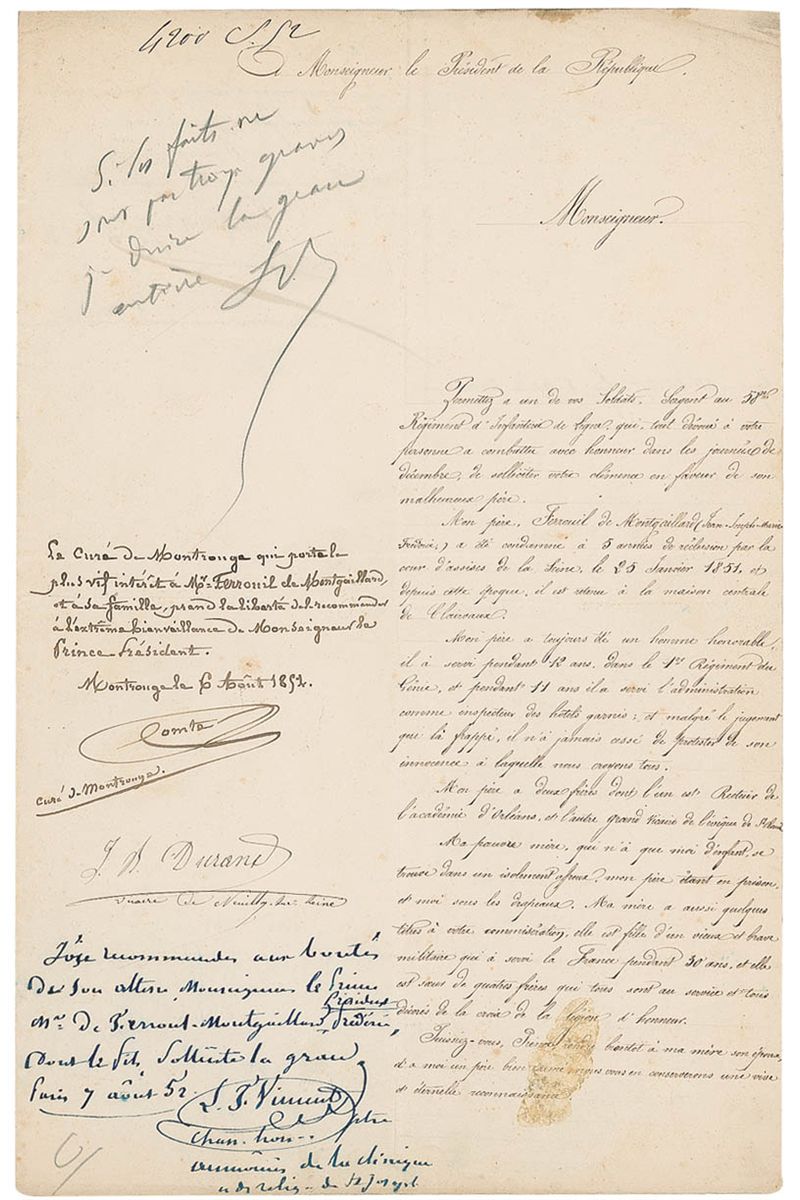 4200 S. 52
A Monseigneur le Président de la République.
Si les faits ne
sont pas trop graves
je désire la grace
entière
Monseigneur.
Permettez a un de vos Soldats, Sergent au 58me
Régiment d'Infanterie de Ligne, qui, tout dévoué à votre
personne a combattu avec honneur dans les journées de
décembre, de solliciter votre clémence en faveur de son
malheureux père.
Mon père, Ferrouil de Montgaillard (Jean-Joseph-Marie
) a été condamné à 5 années de réclusion par la
cour d'assises de la Seine, le 25 Janvier 1851, et
depuis cette époque, il est retenu à la maison centrale
de Clairvaux.
Mon père a toujours été un homme honorable,
il à servi pendant 12 ans, dans le 1er Régiment du
Génie, et pendant 11 ans il a servi l'administration
comme inspecteur des hôtels garnis; et malgré le jugement
qui l'à frappé, il n'à jamais cessé de protester de son
innocence à laquelle nous croyons tous.
Mon père a deux frères dont l'un est Recteur de
l'académie d'Orléans, et l'autre grand vicaire de l'évêque de
Ma pauvre mère, qui n'à que moi d'enfant, se
trouve dans un isolement affreux, mon père étant en prison,
et moi sous les drapeaux. Ma mère a aussi quelques
titres à votre commisération, elle est fille d'un vieux et brave
militaire qui à servi la France pendant 30 ans, et elle
est sœur de quatres frères qui tous sont au service et tous
décorés de la croix de la légion d'honneur.
Puissiez-vous, Prince, rendre bientôt à ma mère son époux,
et a moi un père bien aimé, nous vous en conserverons une vive
et éternelle reconnaissance.
Le Curé de Montrouge qui porte le
plus vif intérêt à Mr. Ferrouil de Montgaillard,
et à sa famille, prend la liberté de le recommander
à l'extrême bienveillance de Monseigneur le
Prince Président.
Montrouge le 6 Août 1852.
Comte
curé de Montrouge.
J. A. Durand
vicaire de Neuilly-sur-Seine
J'ose recommander aux bontés
de Son altesse Monseigneur le Prince
Président
Mr. De Ferrouil-Montgaillard, Frédéric,
dont le fils sollicite la grace
Paris 7 août 52.
L. F. Vincent
ptre
chan. hon.
aumônier de la clinique
de St Joseph